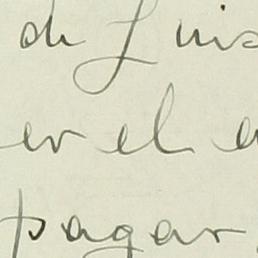 de Luis
er el
pagar